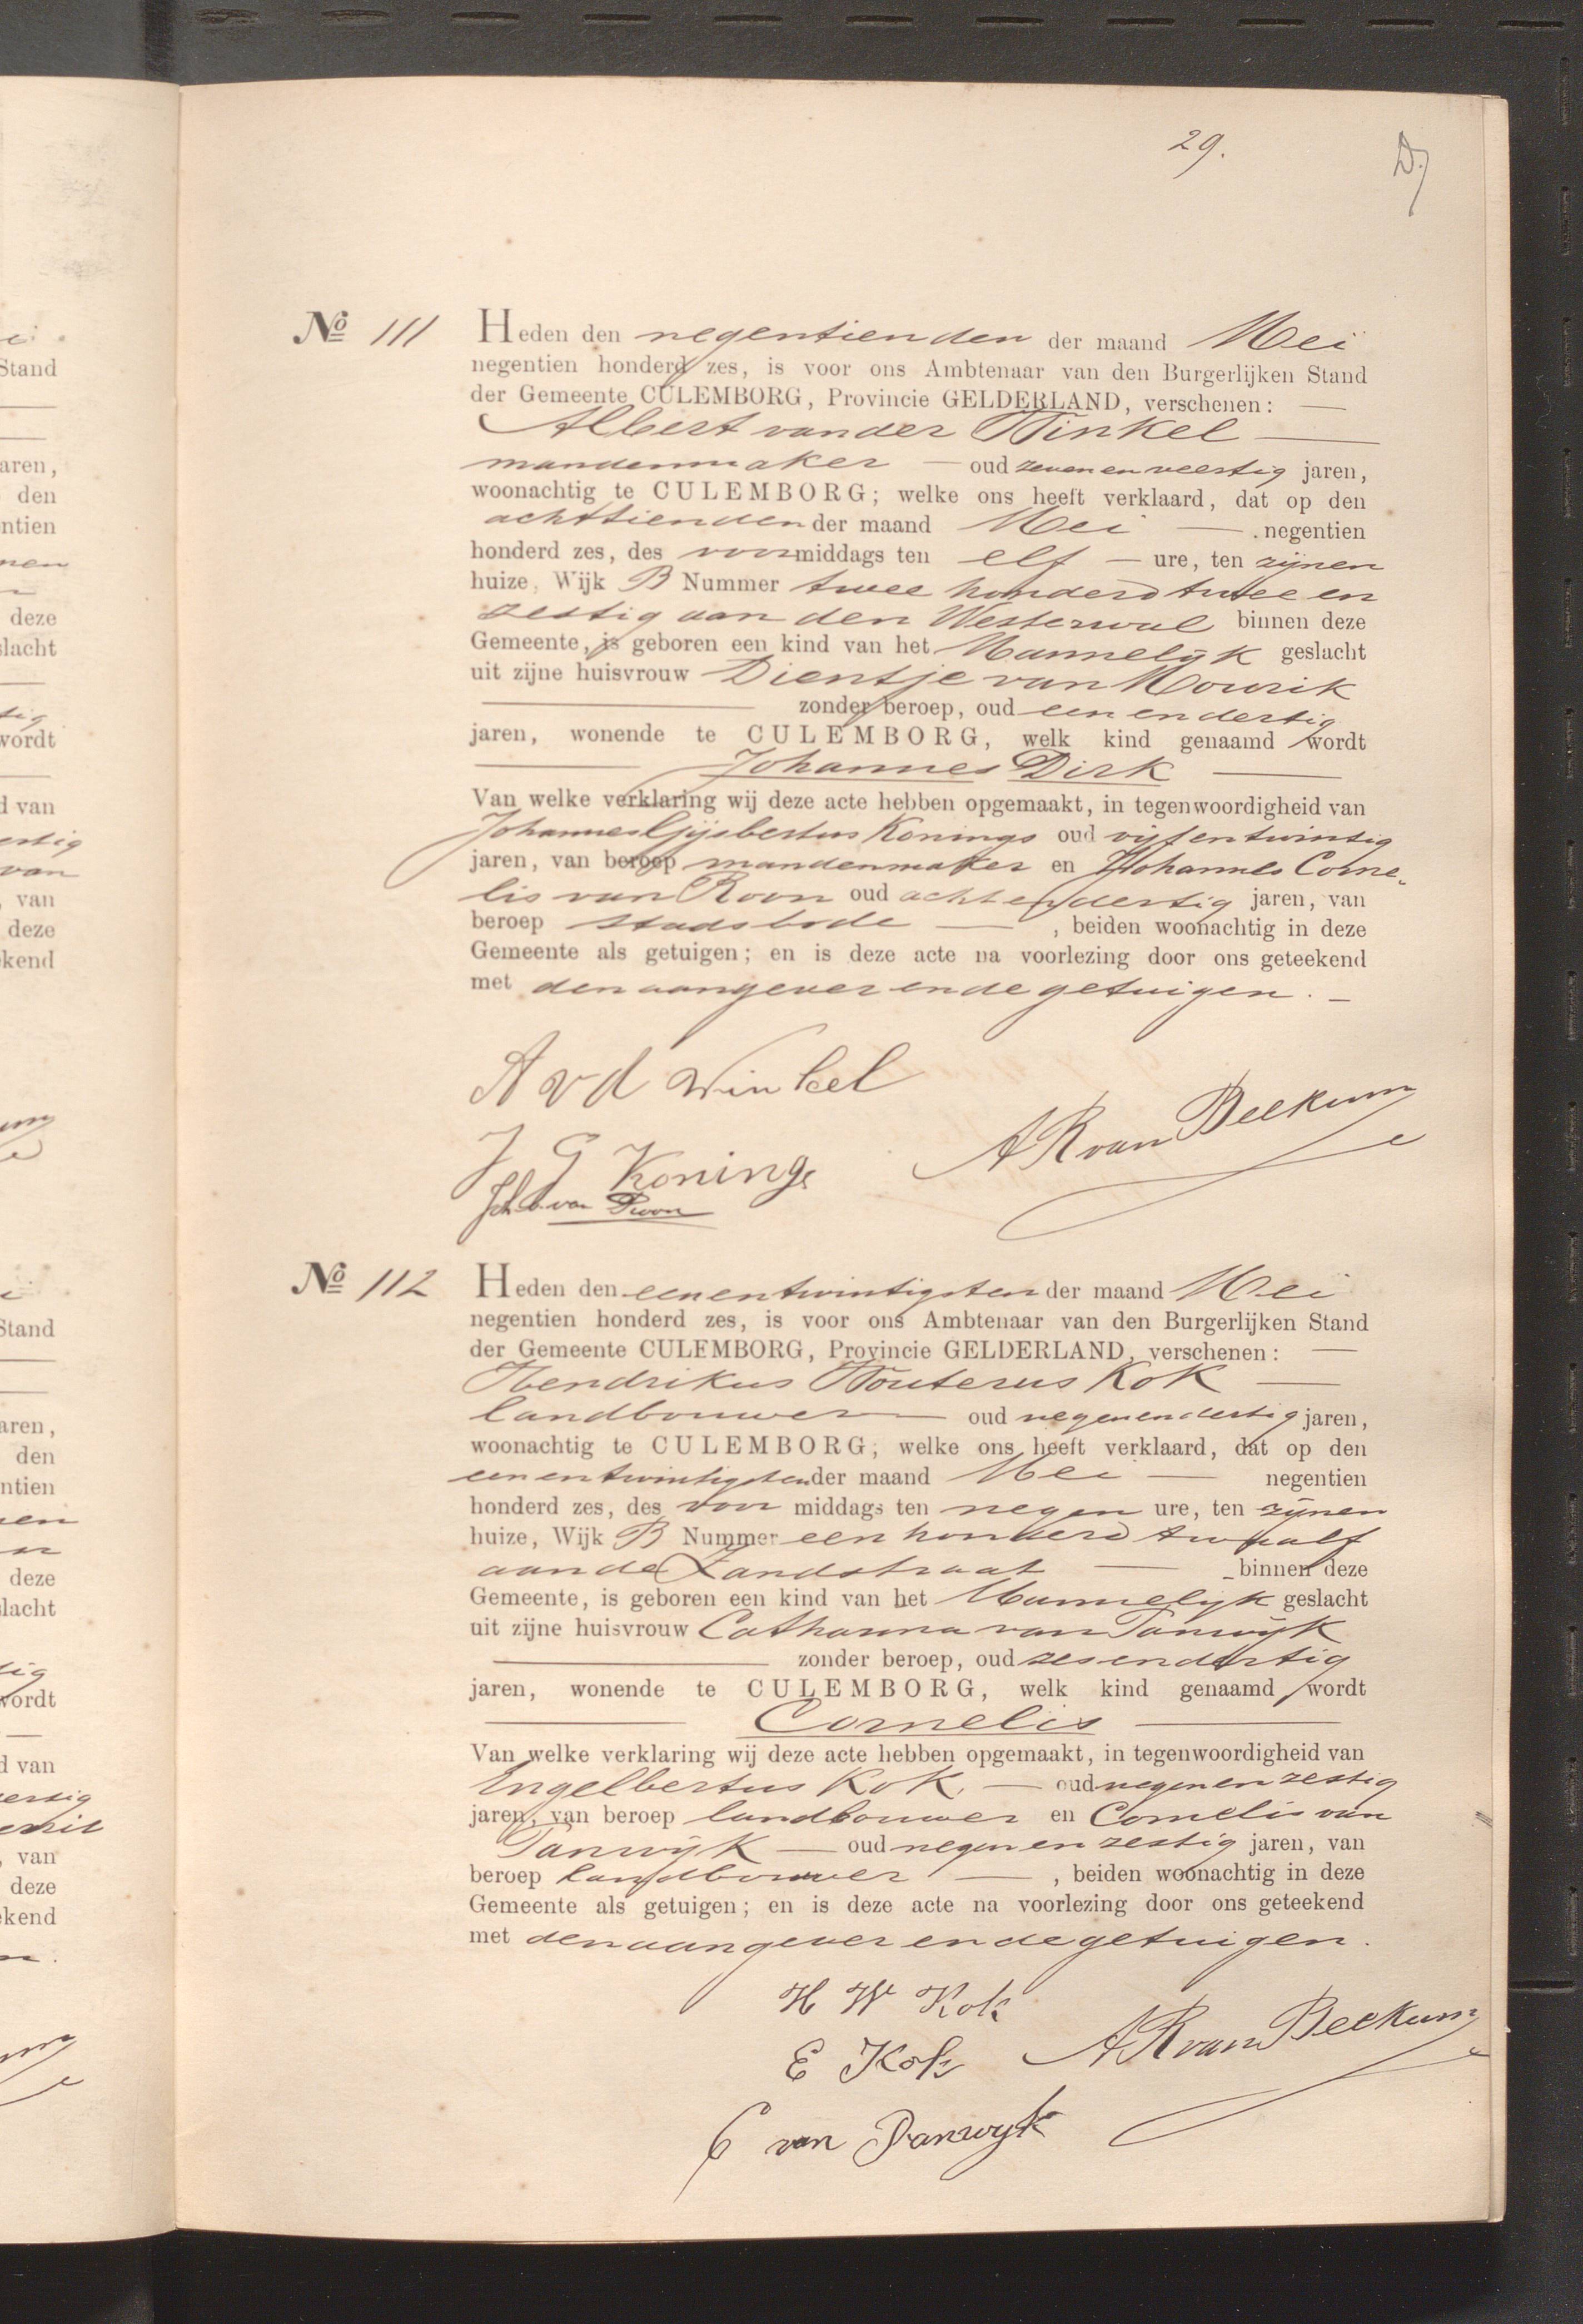 29.
D.
No 111 Heden den negentienden der maand Mei
negentien honderd zes, is voor ons Ambtenaar van den Burgerlijken Stand
der Gemeente CULEMBORG, Provincie GELDERLAND, verschenen: —
Albert van der Winkel —
mandenmaker — oud zeven en veertig jaren,
woonachtig te CULEMBORG; welke ons heeft verklaard, dat op den
achttienden der maand Mei — negentien
honderd zes, des voormiddags ten elf — ure, ten zijnen
huize, Wijk B Nummer twee honderd twee en
zestig aan den Westerwal binnen deze
Gemeente, is geboren een kind van het Mannelijk geslacht
uit zijne huisvrouw Dientje van Mourik
— zonder beroep, oud een en dertig
jaren, wonende te CULEMBORG, welk kind genaamd wordt
— Johannes Dirk —
Van welke verklaring wij deze acte hebben opgemaakt, in tegenwoordigheid van
Johannes Gijsbertus Konings oud vijf en twintig
jaren, van beroep mandenmaker en Johannes Corne-
lis van Roon oud acht en dertig jaren, van
beroep stadsbode — , beiden woonachtig in deze
Gemeente als getuigen; en is deze acte na voorlezing door ons geteekend
met den aangever en de getuigen. —
A v d Winkel
AR van Beekum
J G Konings
Joh C. van Roon
No 112 Heden den een en twintigsten der maand Mei
negentien honderd zes, is voor ons Ambtenaar van den Burgerlijken Stand
der Gemeente CULEMBORG, Provincie GELDERLAND, verschenen: —
Hendrikus Wouterus Kok —
landbouwer — oud negen en dertig jaren,
woonachtig te CULEMBORG; welke ons heeft verklaard, dat op den
een en twintigsten der maand Mei — negentien
honderd zes, des voor middags ten negen ure, ten zijnen
huize, Wijk B Nummer een honderd twaalf
aan de Zandstraat — binnen deze
Gemeente, is geboren een kind van het Mannelijk geslacht
uit zijne huisvrouw Catharina van Panwijk
— zonder beroep, oud zes en dertig
jaren, wonende te CULEMBORG, welk kind genaamd wordt
— Cornelis —
Van welke verklaring wij deze acte hebben opgemaakt, in tegenwoordigheid van
Engelbertus Kok, — oud negen en zestig
jaren, van beroep landbouwer en Cornelis van
Panwijk — oud negen en zestig jaren, van
beroep landbouwer — , beiden woonachtig in deze
Gemeente als getuigen; en is deze acte na voorlezing door ons geteekend
met den aangever en de getuigen.
H W Kok
E Kok AR van Beekum
C van Panwyk